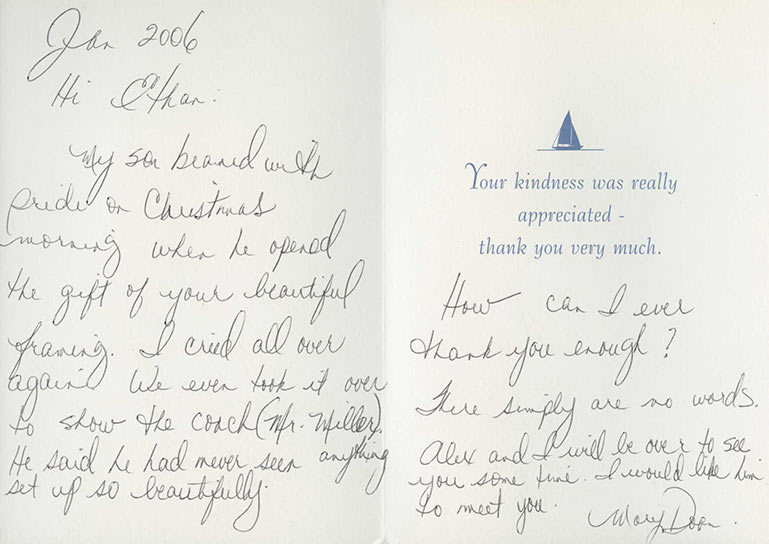 Jan 2006
Hi Ethan:
My son beamed with
pride on Christmas
morning when he opened
the gift of your beautiful
framing. I cried all over
again! We even took it over
to show the coach (Mr. Miller).
He said he had never seen anything
set up so beautifully.
Your kindness was really
appreciated -
thank you very much.
How can I ever
thank you enough?
There simply are no words.
Alex and I will be over to see
you some time. I would like him
to meet you.
Mary Doan.